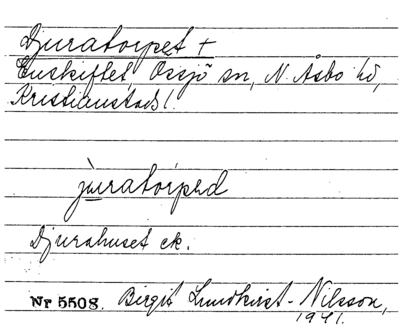 Djuratorpet +
Enskiftet Össjö sn, N. Åsbo hd,
Kristianstads l.
jùratórpəd
Djurahuset ek.
Nr 5508. Birgit Lundkvist-Nilsson,
1941.